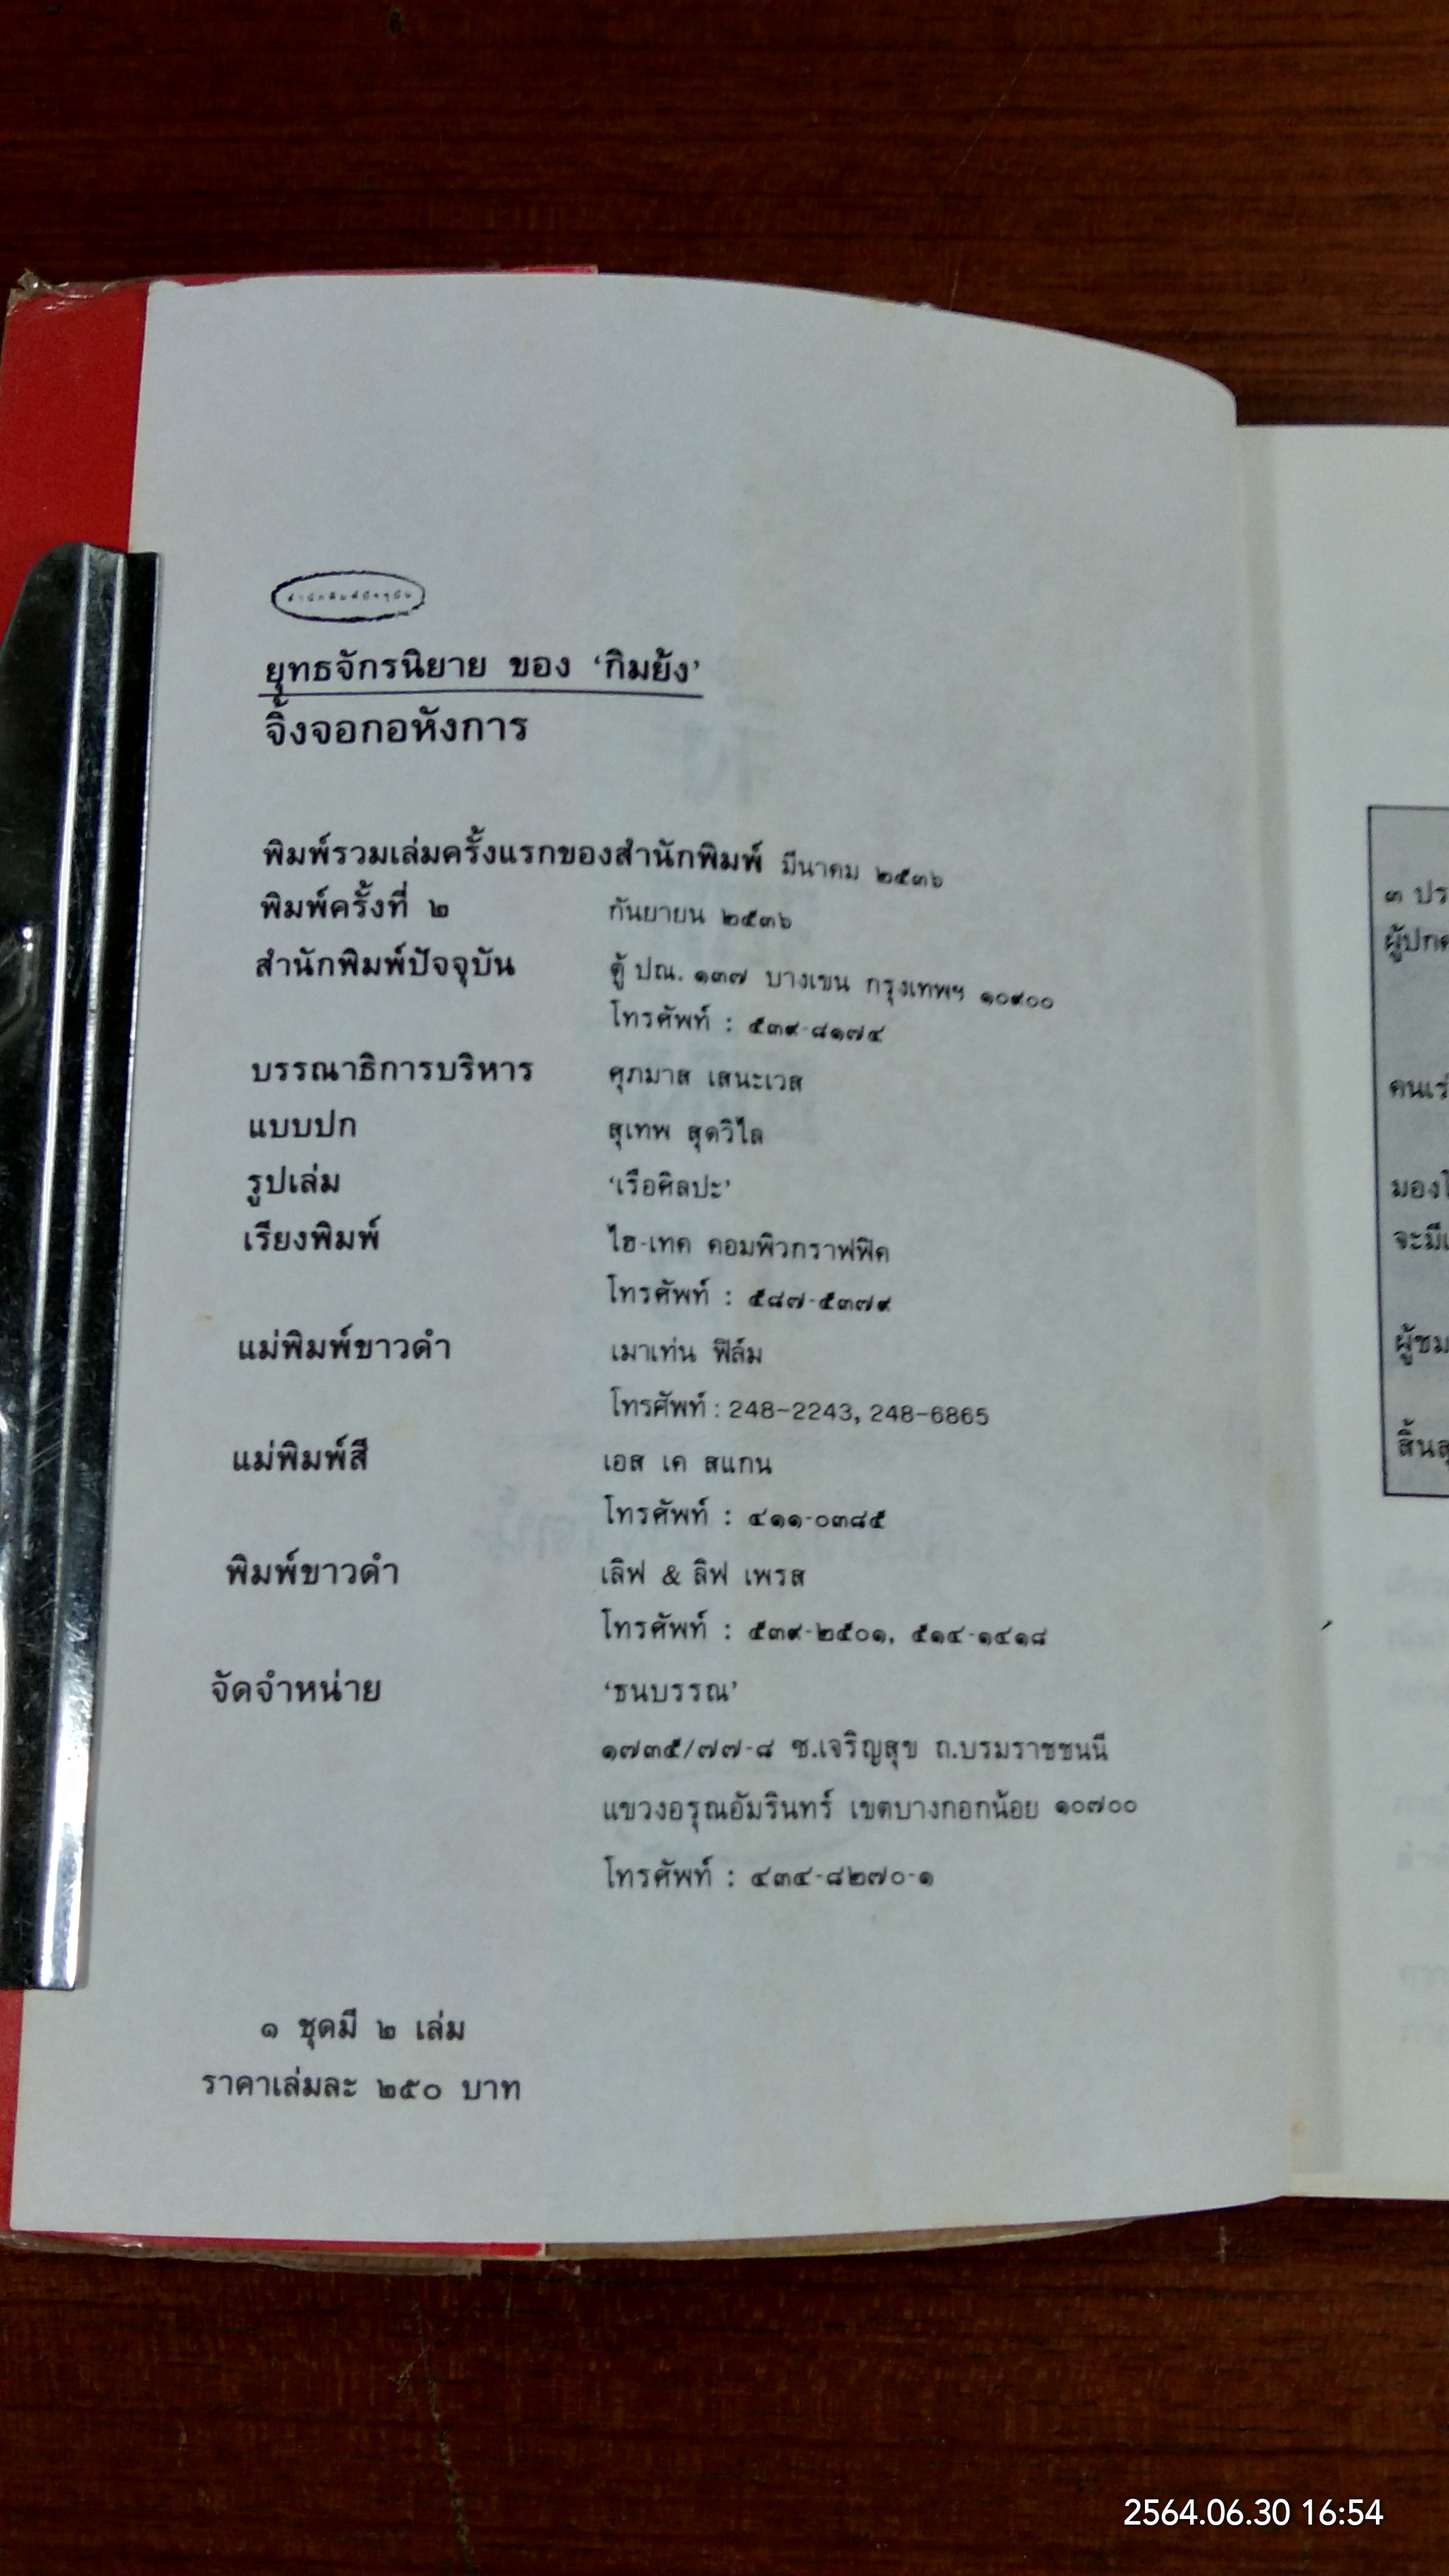 สำนักพิมพ์ปัจจุบัน
ยุทธจักรนิยาย ของ ‘กิมย้ง’
จิ้งจอกอหังการ
พิมพ์รวมเล่มครั้งแรกของสำนักพิมพ์ มีนาคม ๒๕๓๖
พิมพ์ครั้งที่ ๒ กันยายน ๒๕๓๖
สำนักพิมพ์ปัจจุบัน ตู้ ปณ. ๑๓๗ บางเขน กรุงเทพฯ ๑๐๙๐๐
โทรศัพท์ : ๕๓๙-๘๑๗๔
บรรณาธิการบริหาร ศุภมาส เสนะเวส
แบบปก สุเทพ สุดวิไล
รูปเล่ม ‘เรือศิลปะ’
เรียงพิมพ์ ไฮ-เทค คอมพิวกราฟฟิค
โทรศัพท์ : ๕๘๗-๕๓๗๙
แม่พิมพ์ขาวดำ เมาเท่น ฟิล์ม
โทรศัพท์ : 248-2243, 248-6865
แม่พิมพ์สี เอส เค สแกน
โทรศัพท์ : ๔๑๑-๐๓๘๕
พิมพ์ขาวดำ เลิฟ & ลิฟ เพรส
โทรศัพท์ : ๕๓๙-๒๕๐๑, ๕๑๔-๑๔๑๘
จัดจำหน่าย ‘ธนบรรณ’
๑๗๓๕/๗๗-๘ ซ.เจริญสุข ถ.บรมราชชนนี
แขวงอรุณอัมรินทร์ เขตบางกอกน้อย ๑๐๗๐๐
โทรศัพท์ : ๔๓๔-๘๒๗๐-๑
๑ ชุดมี ๒ เล่ม
ราคาเล่มละ ๒๕๐ บาท
๓
มอง
จะมี
ผู้ชม
2564.06.30 16:54